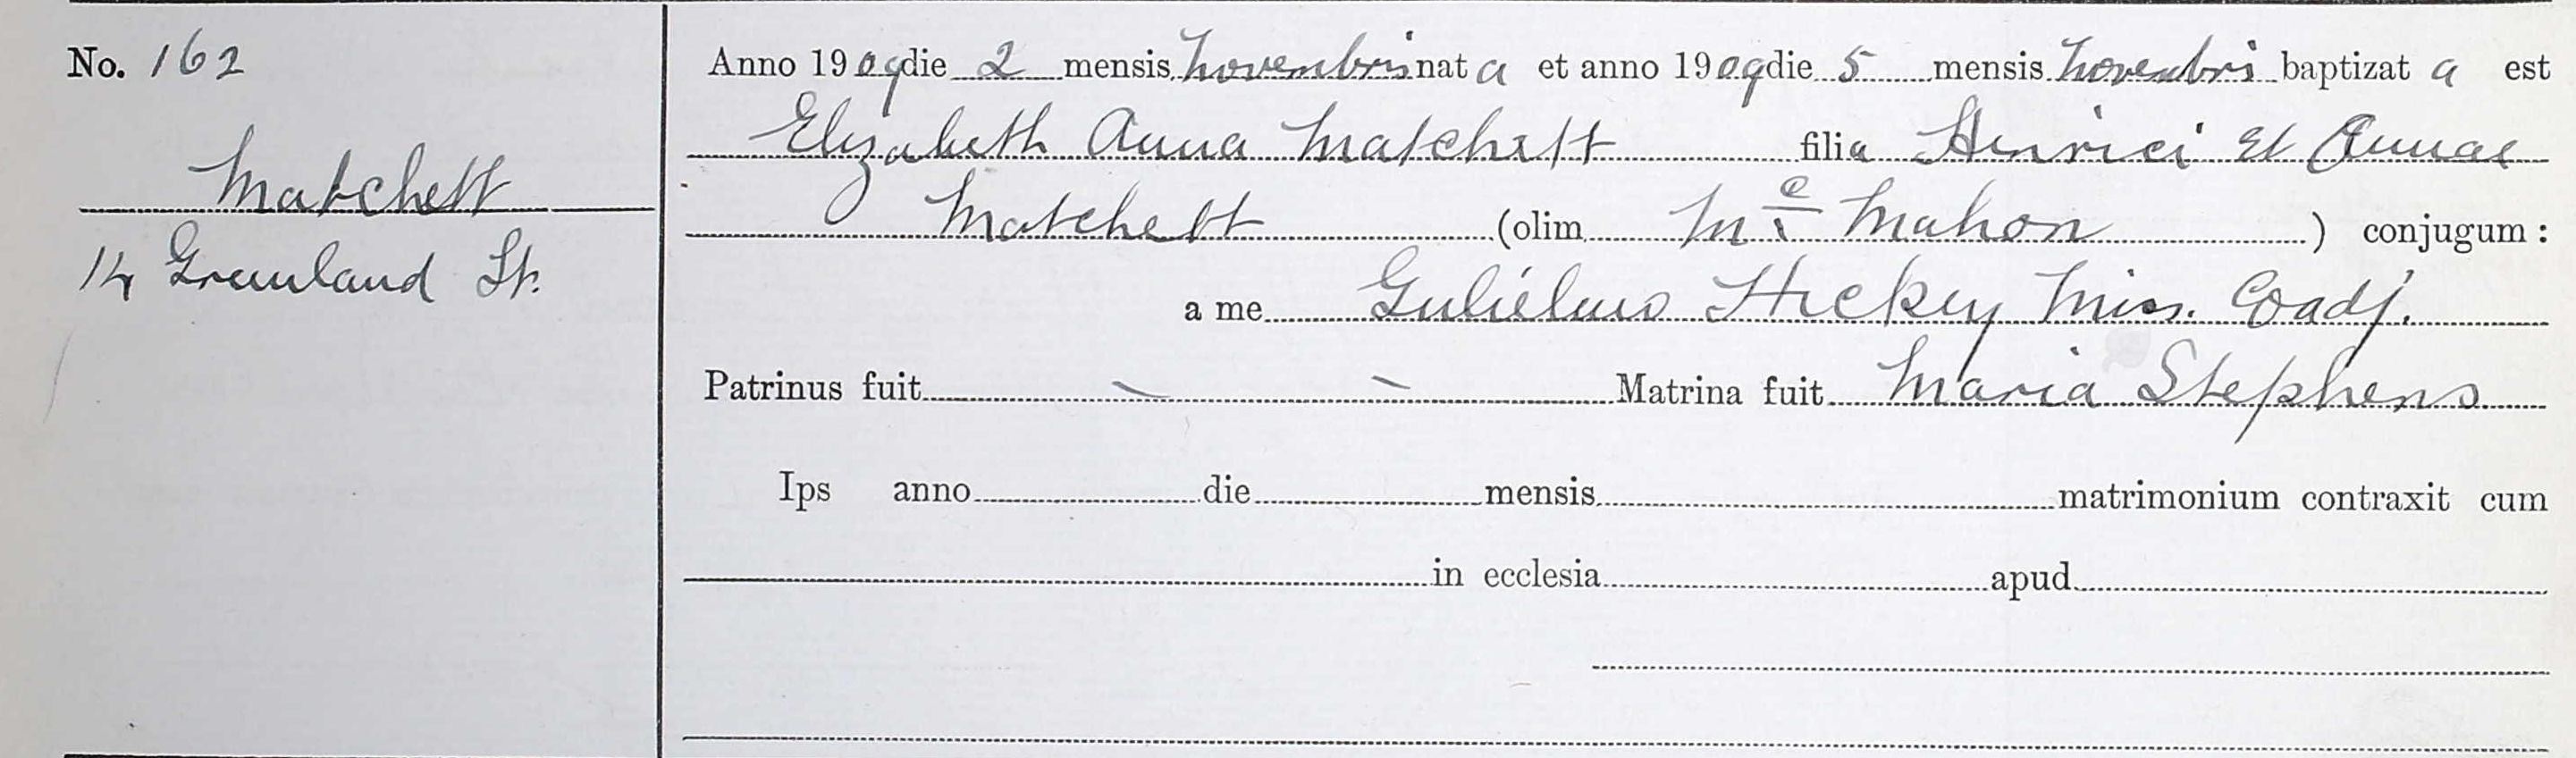 No. 162
Anno 1909 die 2 mensis Novembris nata et anno 1909 die 5 mensis Novembri baptizata est
Elizabeth Anna Matchett filia Henrici et Annae
Matchett
Matchett (olim Mc Mahon) conjugum:
14 Greenland St.
a me Gulielmo Hickey Miss. Coadj.
Patrinus fuit — — Matrina fuit Maria Stephens
Ips anno die mensis matrimonium contraxit cum
in ecclesia apud